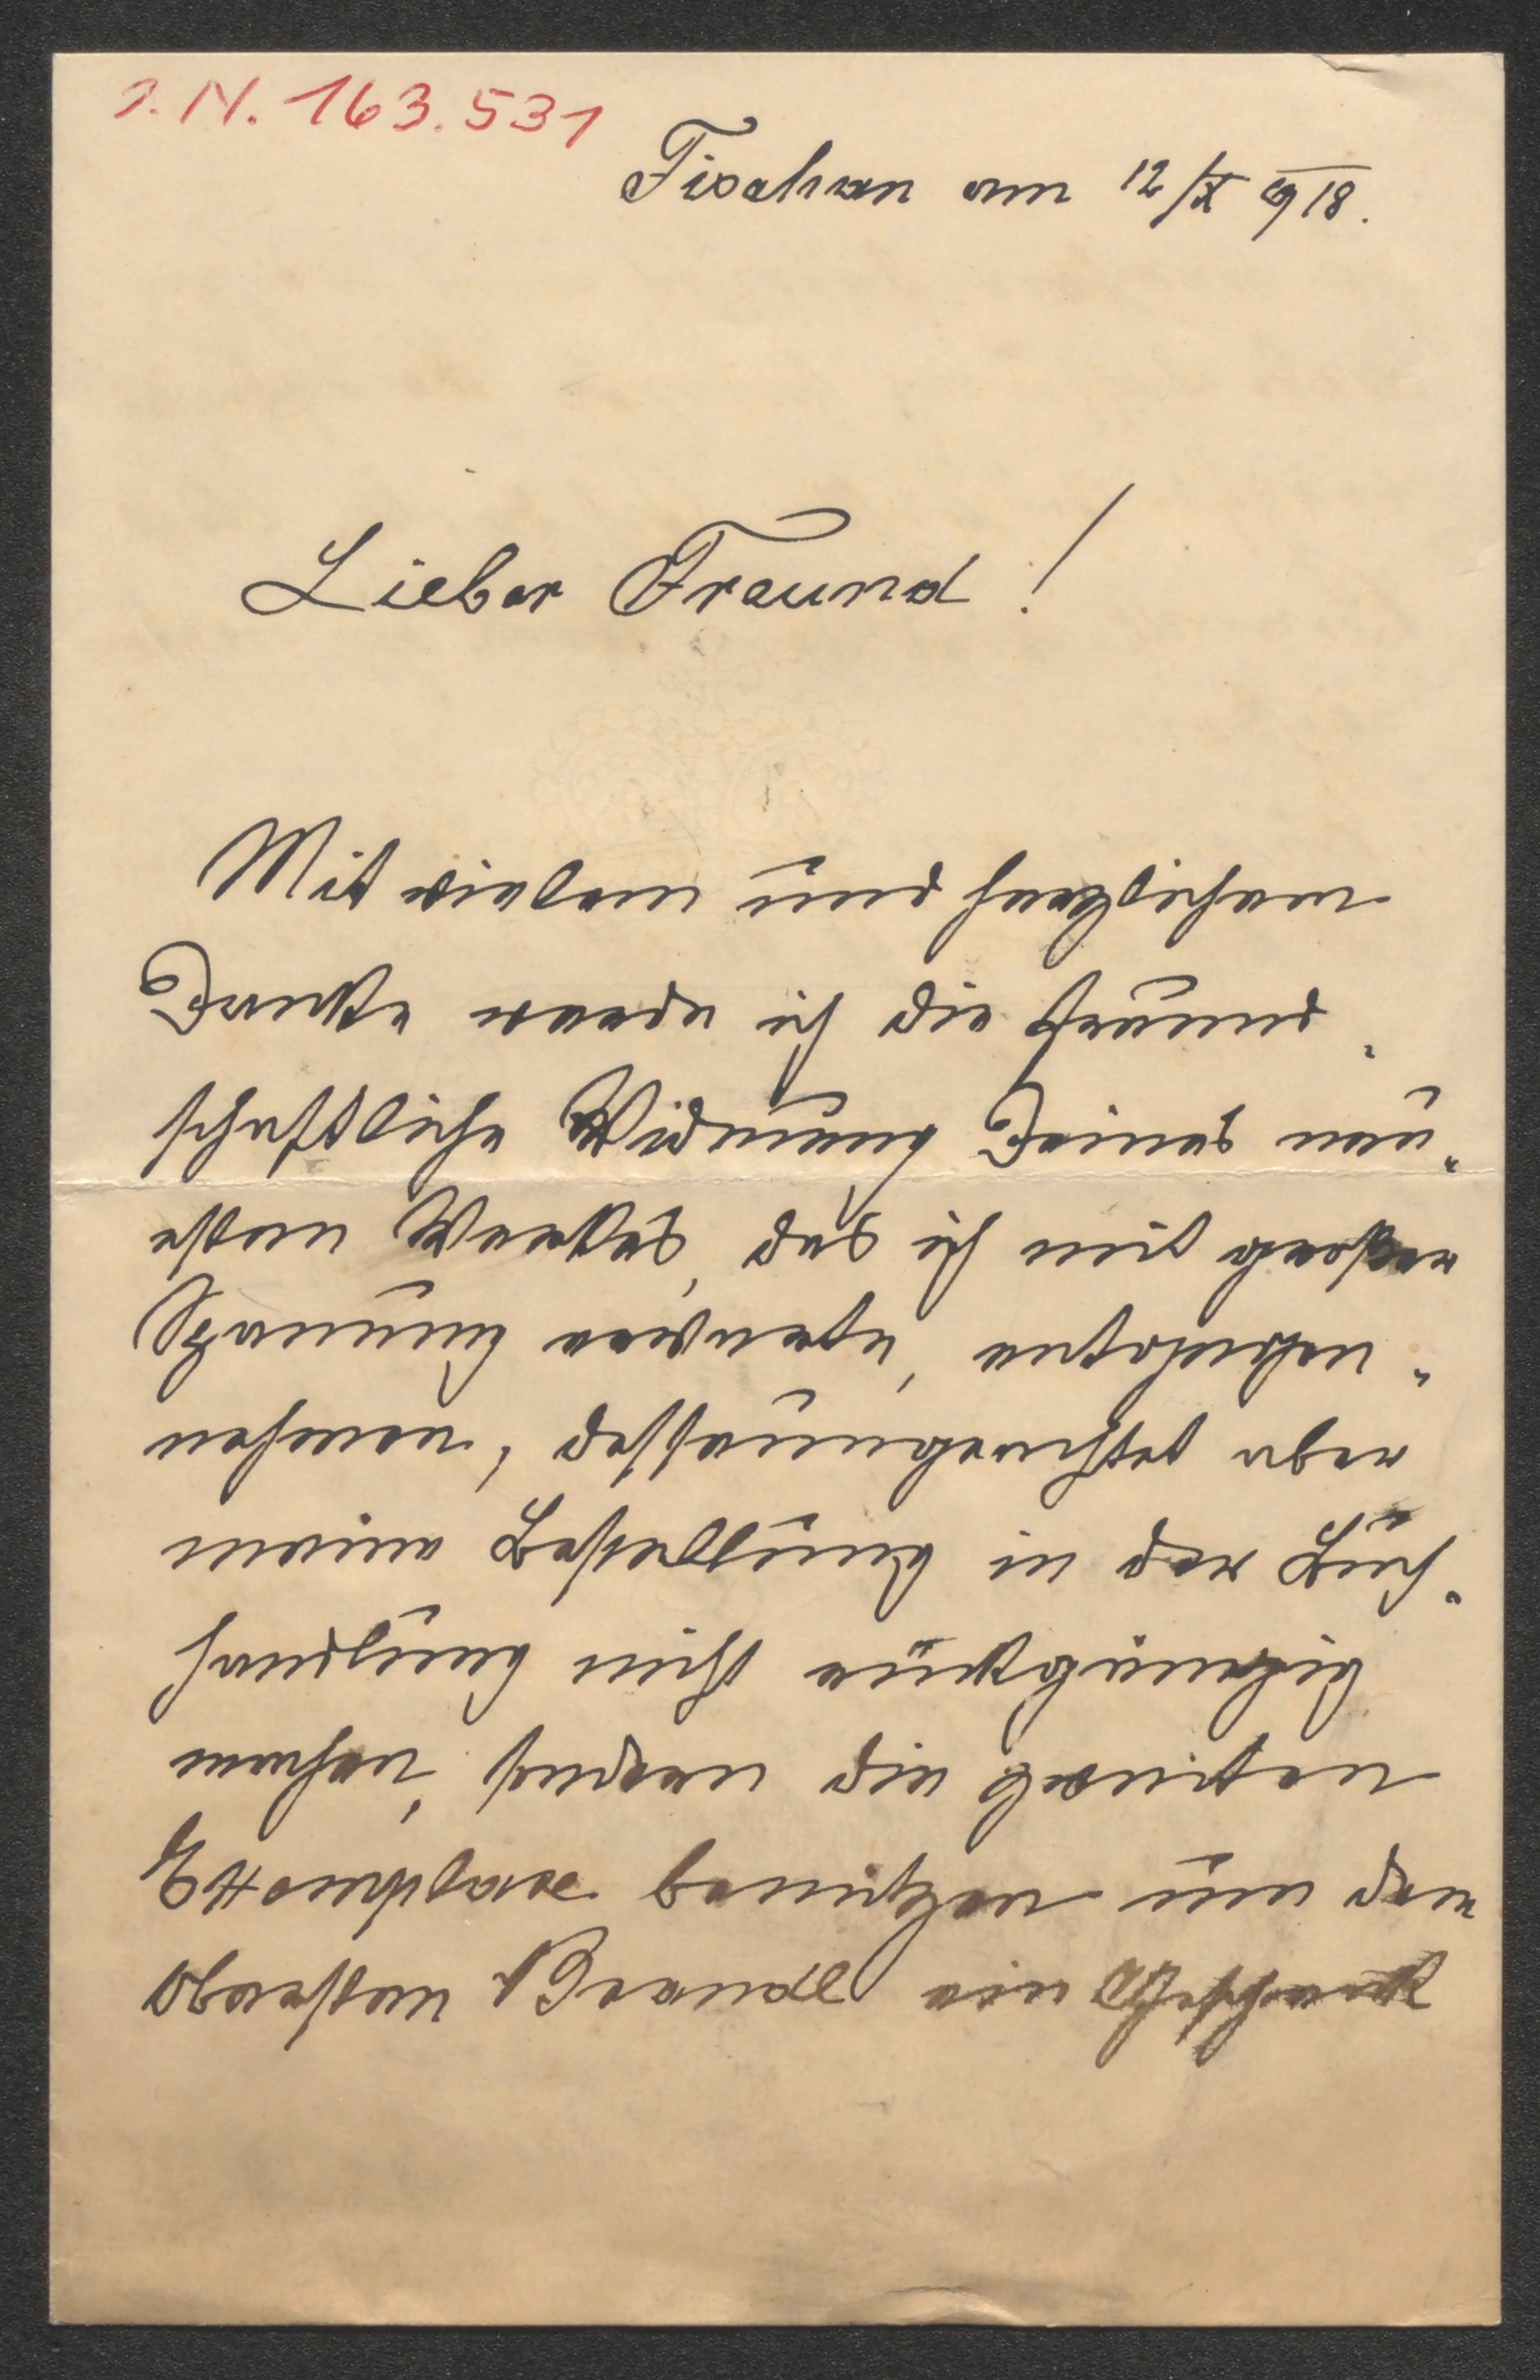 I. N. 163.531
Fischau am 12/X 1918.
Lieber Freund!
Mit vielem und herzlichem
Danke werde ich die freund-
schaftliche Widmung Deines neu-
esten Werkes, das ich mit großer
Spannung erwarte, entgegen-
nehmen, dessenungeachtet aber
meine Bestellung in der Buch-
handlung nicht rückgängig
machen, sondern die zweiten
Exemplare benützen um dem
Obersten ein Geschenk